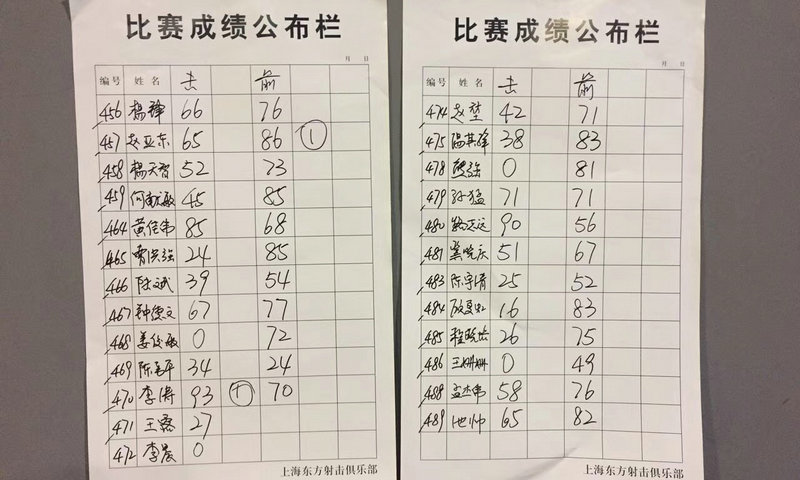 比赛成绩公布栏
月 日
编号 姓名 击 前
456 杨锋 66 76
457 赵亚东 65 86 ①
458 杨天智 52 73
459 何敏 45 85
464 黄任伟 85 68
465 强 24 85
466 陆斌 39 54
467 钟德文 67 77
468 姜俊敏 0 72
469 陈平 34 24
470 李涛 93 ① 70
471 王磊 27
472 李晨 0
上海东方射击俱乐部
比赛成绩公布栏
月 日
编号 姓名 击 前
474 赵堃 42 71
475 陆其锋 38 83
478 熊强 0 81
479 孙猛 71 71
480 志远 90 56
481 龚晓庆 51 67
483 陈宇清 25 52
484 夏虹 16 83
485 程晓 26 75
486 王姗姗 0 49
488 孟杰伟 58 76
489 池帅 65 82
上海东方射击俱乐部